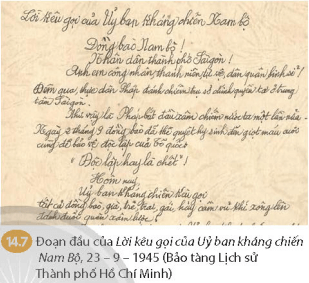 Lời kêu gọi của Uỷ ban kháng chiến Nam bộ
Đồng bào Nam bộ!
Nhân dân thành phố Saigon!
Anh em công nhân, thanh niên, tự vệ, dân quân, binh sĩ!
Đêm qua, thực dân Pháp đánh chiếm trụ sở chính quyền ta ở trung
tâm Saigon.
Như vậy là Pháp bắt đầu xâm chiếm nước ta một lần nữa.
Ngày 2 tháng 9 đồng bào đã thề quyết hy sinh đến giọt máu cuối
cùng để bảo vệ độc lập của Tổ quốc:
"Độc lập hay là chết"!
Hôm nay
Uỷ ban kháng chiến kêu gọi
Tất cả đồng bào, già, trẻ, trai, gái, hãy cầm vũ khí xông lên
đánh đuổi quân xâm lược!
14.7 Đoạn đầu của Lời kêu gọi của Uỷ ban kháng chiến
Nam Bộ, 23 – 9 – 1945 (Bảo tàng Lịch sử
Thành phố Hồ Chí Minh)